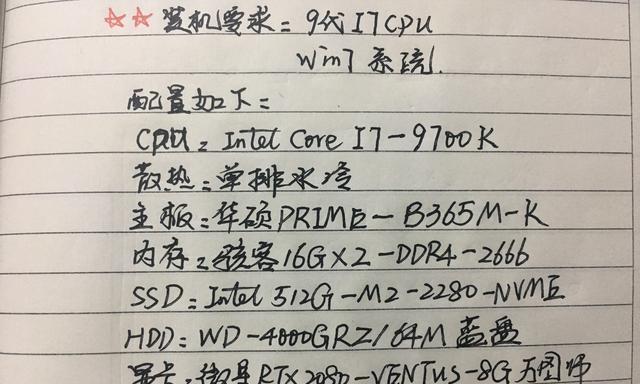 ☆☆ 装机要求：9代I7CPU
Win7系统.
配置如下：
CPU：Intel Core I7-9700K
散热：单排水冷
主板：华硕PRIME-B365M-K
内存：骇客16GX2-DDR4-2666
SSD：Intel 512G-M2-2280-NVME
HDD：WD-4000GRZ/64M蓝盘
显卡：微星RTX2080-VENTUS-8G万图师